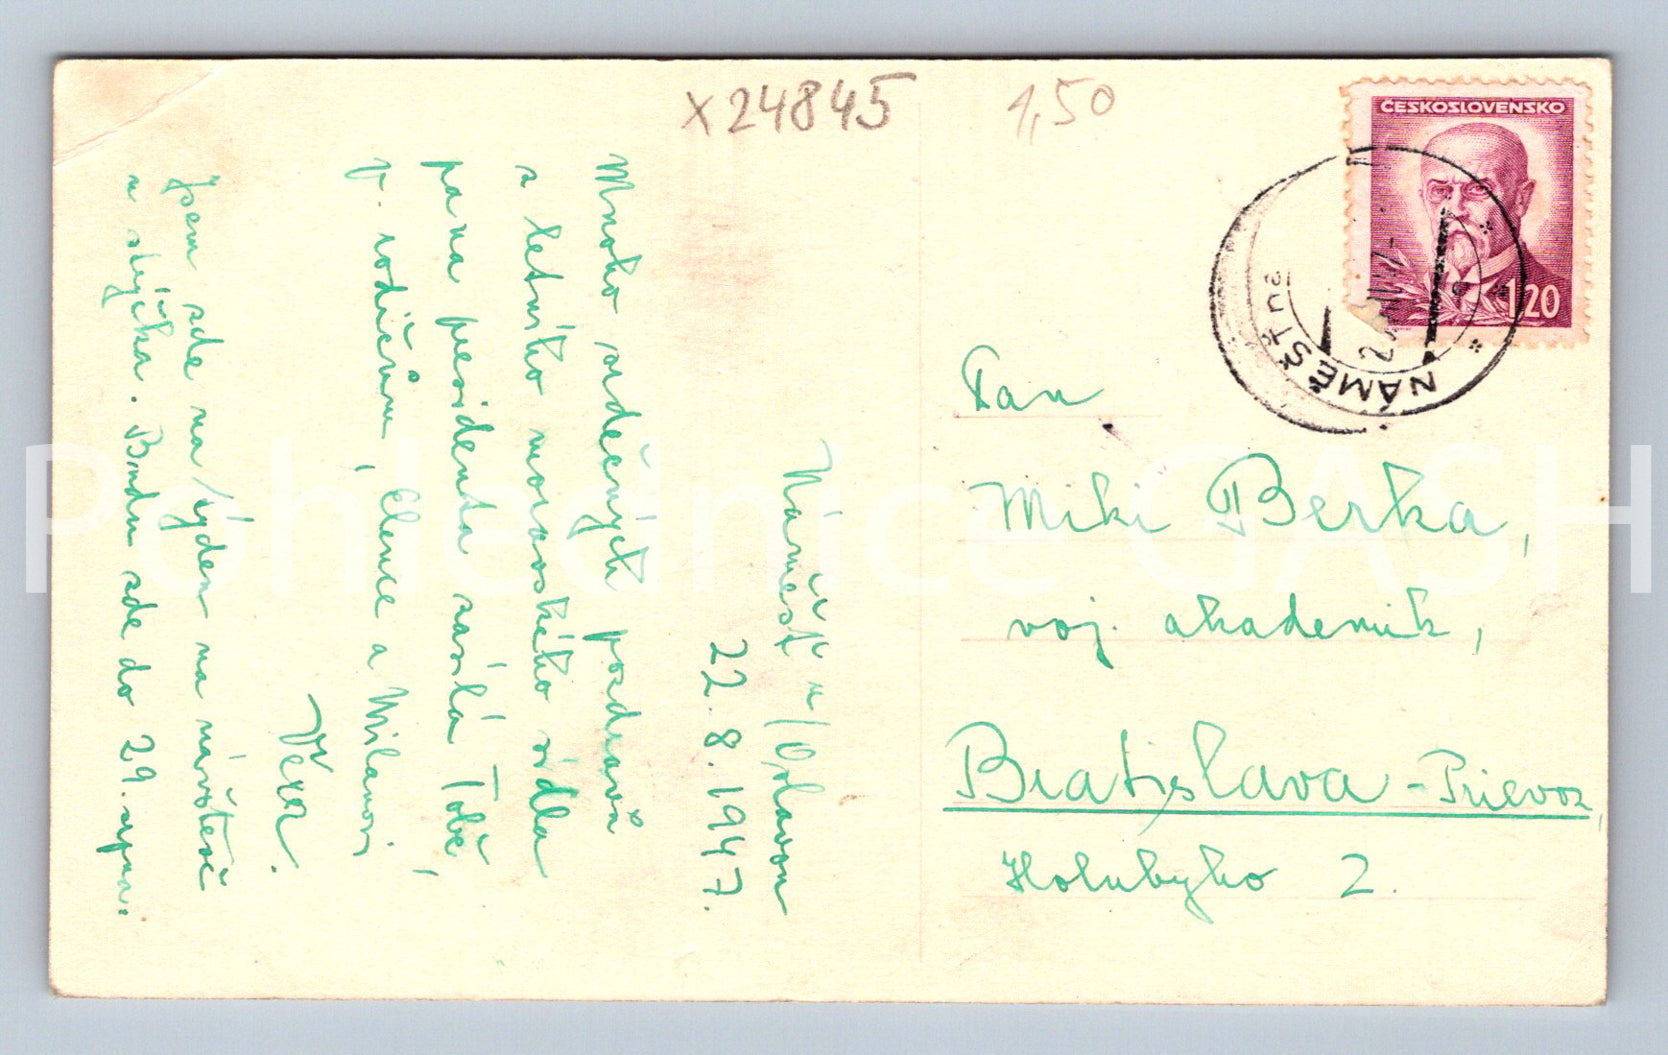 x24845
1,50
ČESKOSLOVENSKO
1·20
NÁMĚŠŤ
Náměšť n/Oslavou
22. 8. 1947.
Mnoho srdečných pozdravů
z letního moravského sídla
pana presidenta zasílá Tobě,
p. rodičům, Elence a Milanovi
Věra.
Jsem zde na týden na návštěvě
u strýčka. Budu zde do 29. srpna.
Pan
Miki Berka,
voj. akademik,
Bratislava - Prievoz,
Holubyho 2.
Pohlednice GASH